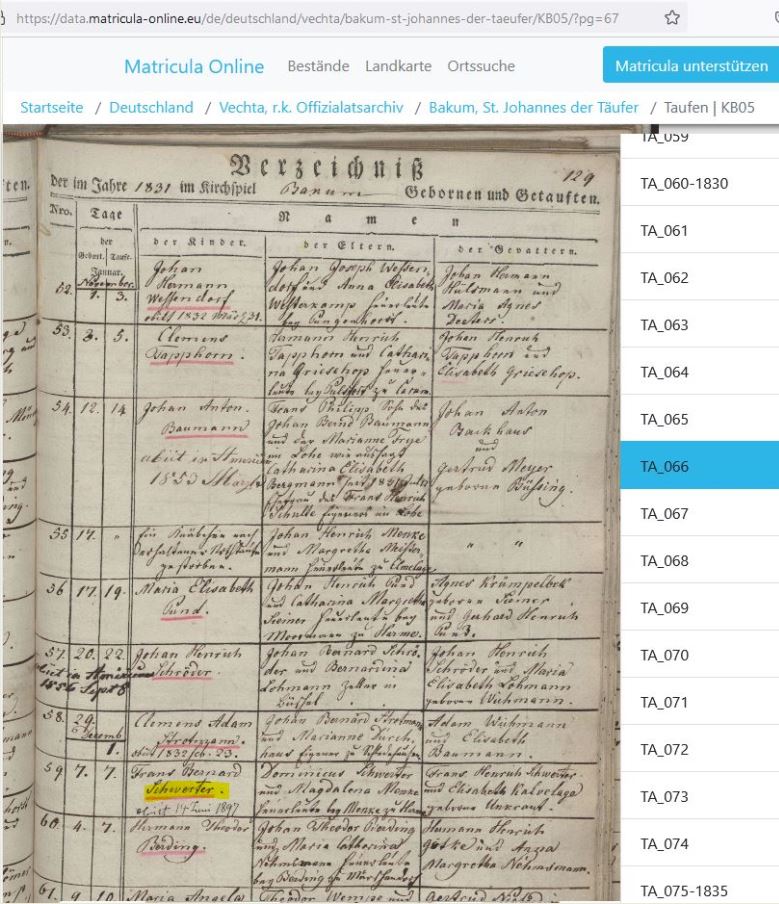 https://data.matricula-online.eu/de/deutschland/vechta/bakum-st-johannes-der-taeufer/KB05/?pg=67
Matricula Online Bestände Landkarte Ortssuche Matricula unterstützen
Startseite / Deutschland / Vechta, r.k. Offizialatsarchiv / Bakum, St. Johannes der Täufer / Taufen | KB05
Verzeichniß
129
der im Jahre 1831 im Kirchspiel Bakum Gebornen und Getauften.
Nro. Tage Namen
der der Kinder. der Eltern. der Gevattern.
Geburt. Taufe.
Januar.
November.
52. 1. 3.
Johan
Hermann
Wessendorf
obiit 1832 März 31.
Johan Joseph Wessen-
dorf und Anna Elisabeth
Westerkamp Heuerleute
Johan Hermann
Hülsmann und
Maria Agnes
53. 3. 5.
Clemens
Tapphorn.
Hermann Henrich
Tapphorn und Cathari-
na Grieshop Heuer-
leute
Johan Henrich
Tapphorn und
Elisabeth Grieshop.
54. 12. 14
Johan Anton.
Baumann
1853
Frans Philipp Sohn des
Johan Bernd Baumann
und der Marianne
Catharina Elisabeth
Bergmann
Frans Henrich
Schulte
Johan Anton
Backhaus
und
Gertrud Meyer
geborne Büssing.
55 17. "
Ein Knäbchen nach
erhaltener Nothtaufe
gestorben.
Johan Henrich Menke
und Margretha
mann Heuerleute zu
" "
56 17. 19.
Maria Elisabeth
Pund.
Johan Henrich Pund
und Catharina Margreth
Heuerleute bey
Moormann zu Harme.
Agnes Krümpelbek
geborne
und Gerhard Henrich
Pund.
57. 20. 22.
Johan Henrich
Schröder.
Johan Bernard Schrö-
der und Bernardina
Lohmann Zeller in
Büschel
Johan Henrich
Schröder und Maria
Elisabeth Lohmann
geborne Wichmann.
58. 29.
Decemb
1.
Clemens Adam
Strotmann.
obiit 1832 feb. 23.
Johan Bernard Strotman
und Marianne
haus Eigener zu
Adam Wichmann
und Elisabeth
Baumann.
59. 7. 7.
Frans Bernard
Schwerter.
obiit 14 Juni 1897
Dominicus Schwerter
und Magdalena Menke
Heuerleute bey Menke zu Harme
Frans Henrich Schwerter
und Elisabeth Kalvelage
geborne Unkraut.
60. 4. 7.
Hermann Theodor
Berding.
Johan Theodor Berding
und Maria Catharina
Heuerleute
bey Berding zu
Hermann Henrich
Götke und Anna
Margretha
61. 9 10
Maria Angela
Theodor Wempe und
Gertrud
TA_059
TA_060-1830
TA_061
TA_062
TA_063
TA_064
TA_065
TA_066
TA_067
TA_068
TA_069
TA_070
TA_071
TA_072
TA_073
TA_074
TA_075-1835